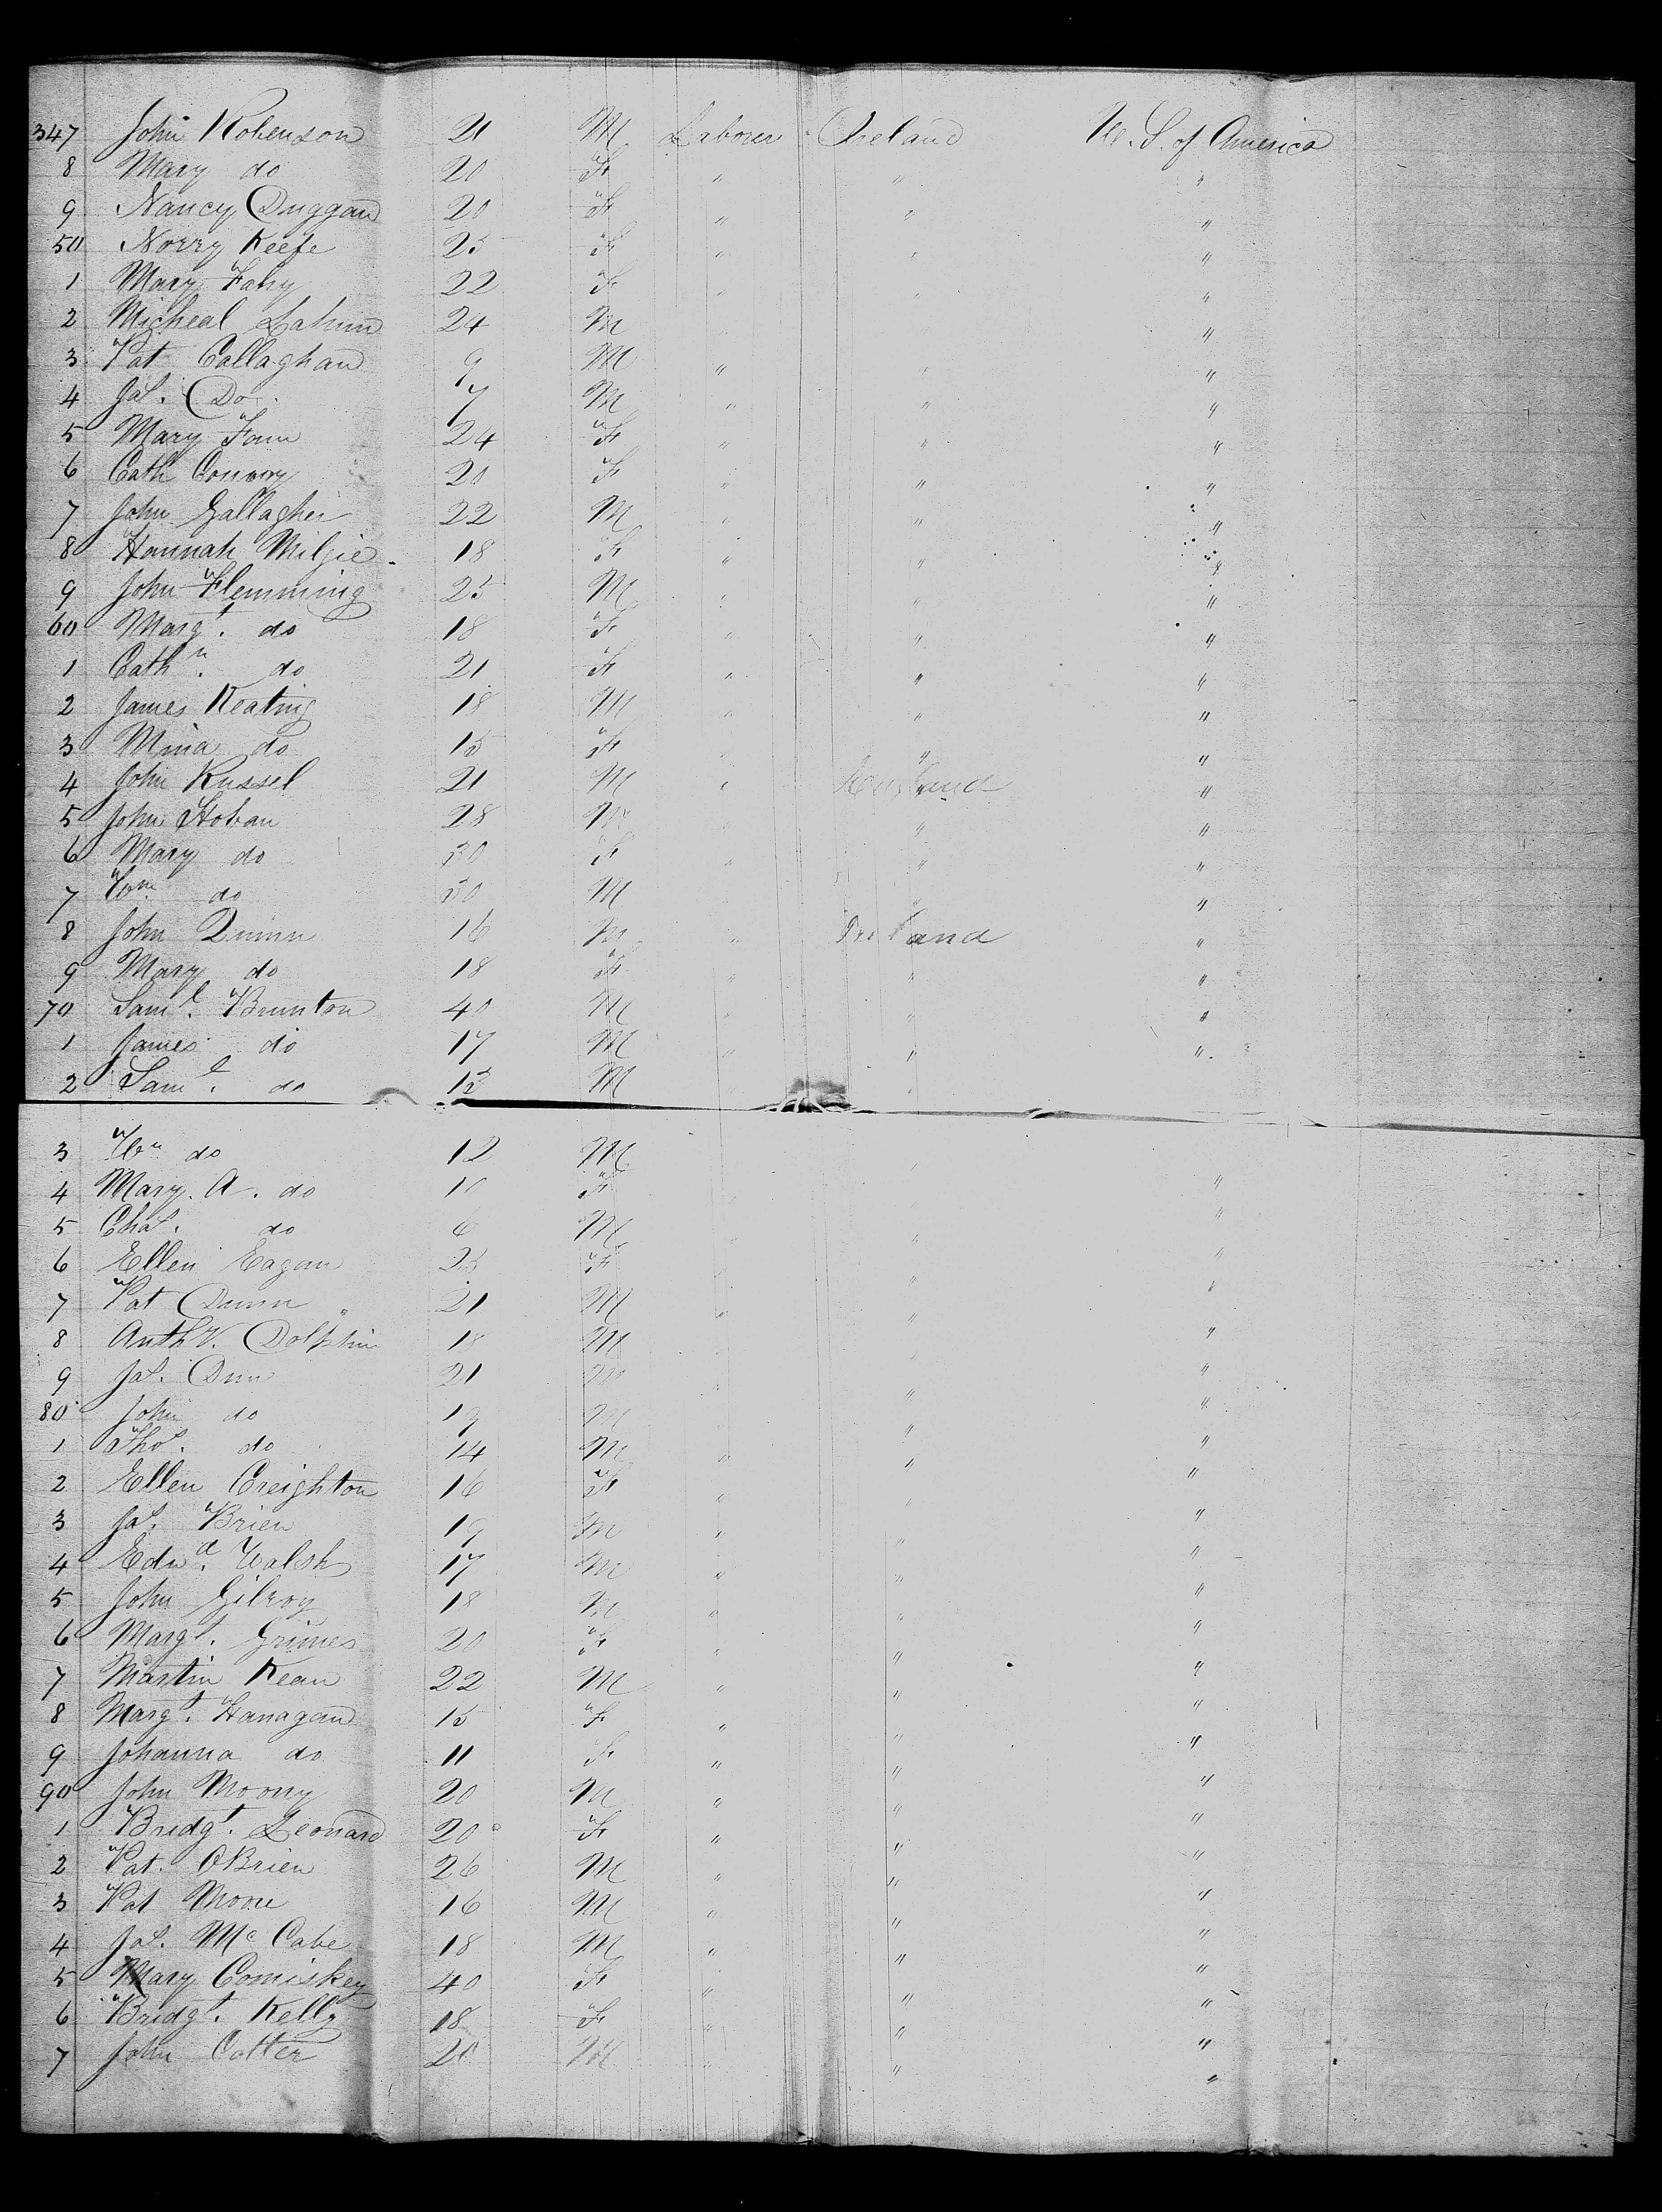 347 John Robenson 21 M Laborer Ireland U. S. of America
8 Mary do 20 F " " "
9 Nancy Duggan 20 F " " "
50 Norry Keefe 25 F " " "
1 Mary Fahy 22 F " " "
2 Micheal 24 M " " "
3 Pat Callaghan 9 M " " "
4 Jas. Do 7 M " " "
5 Mary 24 F " " "
6 Cath Conway 20 F " " "
7 John Gallagher 22 M " " "
8 Hannah 18 F " " "
9 John Flemming 25 M " " "
60 Margt. do 18 F " " "
1 Cathn. do 21 F " " "
2 James Keating 18 M " " "
3 Mina do 15 F " " "
4 John Russel 21 M " England "
5 John Hoban 28 M " " "
6 Mary do 30 F " " "
7 Wm. do 30 M " "
8 John Quinn 16 M " Ireland "
9 Mary do 18 F " " "
70 Saml. Brunton 40 M " " "
1 James do 17 M " " "
2 Saml. do 13 M "
3 Wm do 12 M
4 Mary. A. do 10 F "
5 Chas. do 6 M " "
6 Ellen Eagan 25 F " "
7 Pat Dunn 21 M " " "
8 Anthy. Dolphin 18 M "
9 Jas. Dunn 21 M " " "
80 John do 19 M " "
1 Thos. do 14 M " " "
2 Ellen Creighton 16 F " " "
3 Jas. Brien 19 M " " "
4 Edwd. Walsh 17 M " " "
5 John Gilroy 18 M " " "
6 Margt. Grimes 20 F " " "
7 Martin Kean 22 M " " "
8 Margt. Hanagan 15 F " " "
9 Johanna do 11 F " " "
90 John Moony 20 M " " "
1 Bridgt. Leonard 20 F " " "
2 Pat. OBrien 26 M " " "
3 Pat Moore 16 M " " "
4 Jas. McCabe 18 M " " "
5 Mary Comiskey 40 F " " "
6 Bridgt. Kelly 18 F " " "
7 John Cotter 20 M " " "